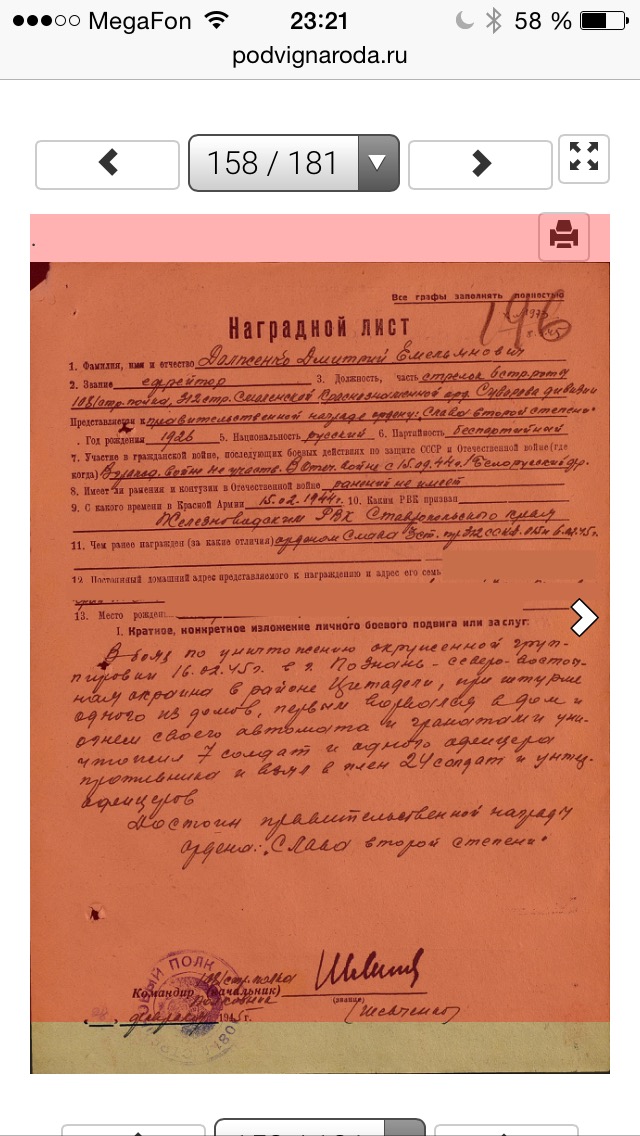 MegaFon 23:21 58 %
podvignaroda.ru
158 / 181
Все графы заполнять полностью
196
Наградной лист
1. Фамилия, имя и отчество Долженко Дмитрий Емельянович
2. Звание ефрейтор 3. Должность, часть стрелок 6 стр.роты
1081 стр.полка, 312 стр. Смоленской Краснознаменной орд. Суворова дивизии
Представляется к правительственной награде ордену: "Слава второй степени"
Год рождения 1926 5. Национальность русский 6. Партийность беспартийный
7. Участие в гражданской войне, последующих боевых действиях по защите СССР и Отечественной войне (где
когда) В гражд. войне не участв. В отеч. войне с 15.09.44г. 1 Белорусский фр.
8. Имеет ли ранения и контузии в Отечественной войне ранений не имеет
9. С какого времени в Красной Армии 15.02.1944г. 10. Каким РВК призван
РВК Ставропольского края
11. Чем ранее награжден (за какие отличия) орденом Слава 3 ст. пр. 312
12. Постоянный домашний адрес представляемого к награждению и адрес его семь
13. Место рожден
I. Краткое, конкретное изложение личного боевого подвига или заслуг:
В боях по уничтожению окруженной груп-
пировки 16.02.45г. в г. Познань - северо-восточ-
ная окраина в районе Цитадели, при штурме
одного из домов, первым ворвался в дом и
огнем своего автомата и гранатами уни-
чтожил 7 солдат и одного офицера
противника и взял в плен 24 солдат и унтер
офицеров
Достоин правительственной награды
ордена: "Слава второй степени"
1081 стр.полка
Командир (начальник)
подполковник (звание)
февраля 1945 г. (Шевченко)